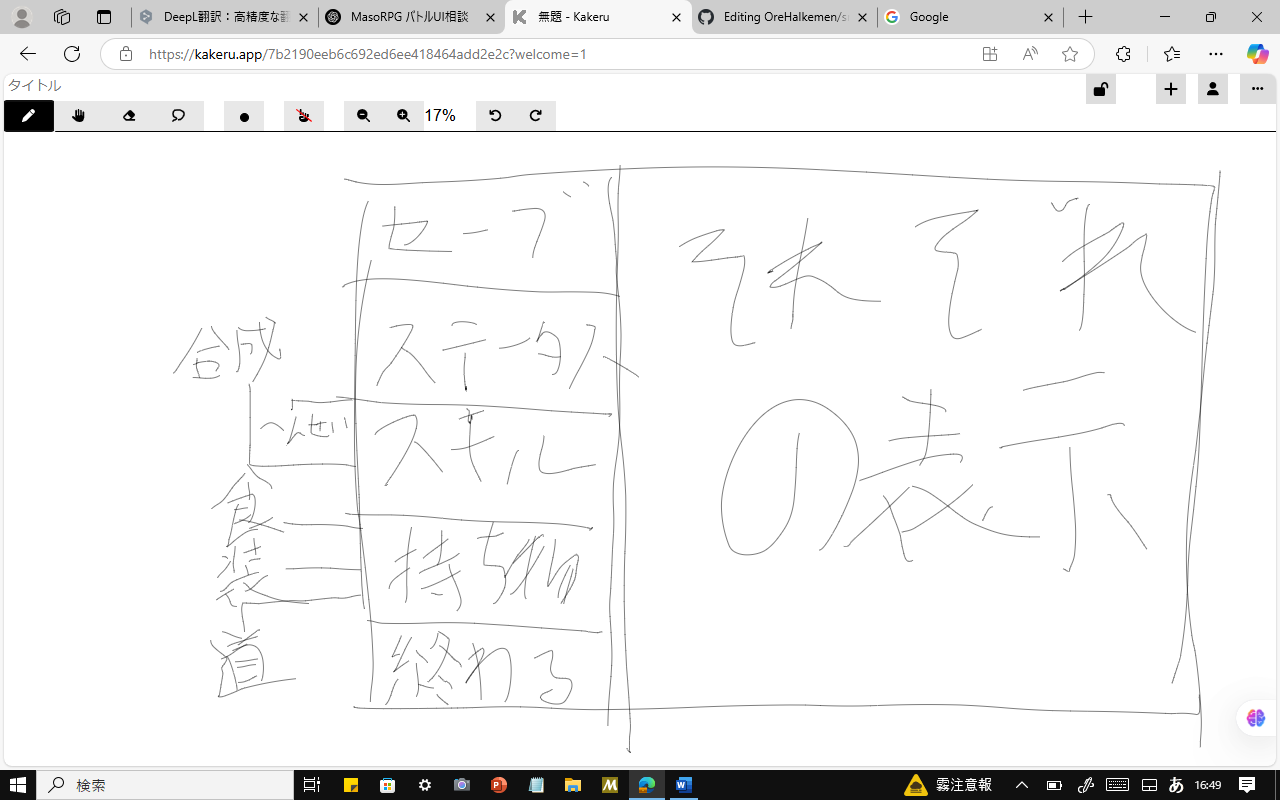 DeepL翻訳：高精度な翻
MasoRPG バトルUI相談
無題 - Kakeru
Editing OreHalkemen/s
Google
https://kakeru.app/7b2190eeb6c692ed6ee418464add2e2c?welcome=1
タイトル
17%
セーブ
ステータス
スキル
持ち物
終わる
合成
へんせい
食
装
道
それぞれ
の表示
検索
霧注意報
あ
16:49